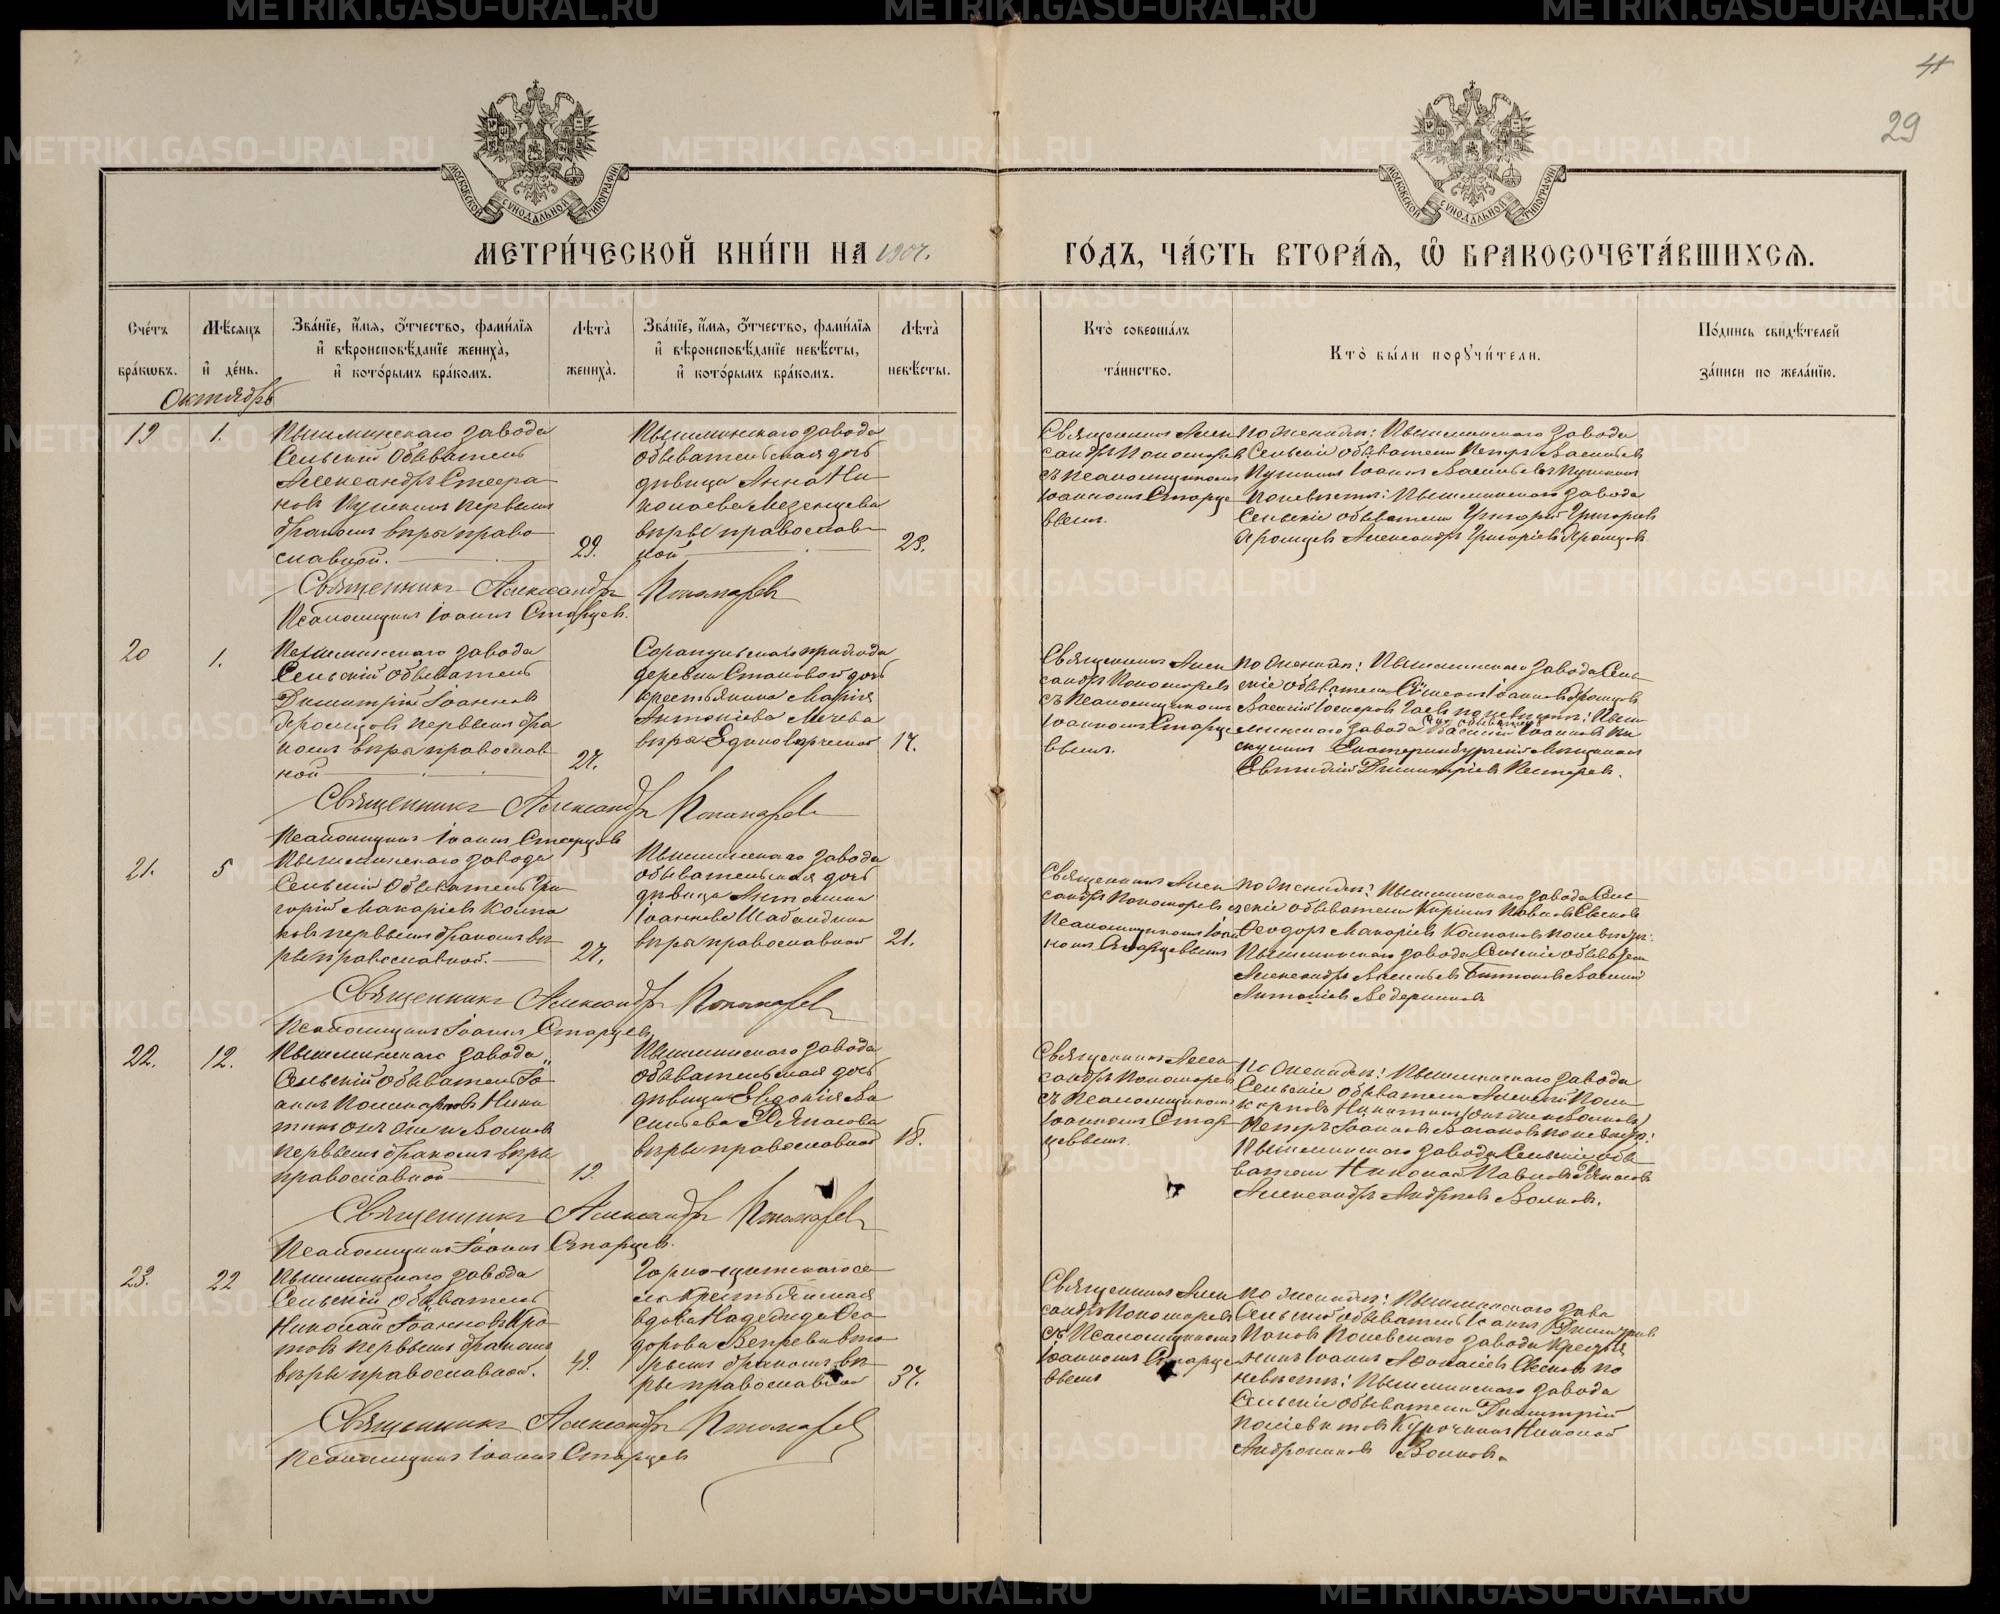 41
29
МОСКОВСКОЙ СѴНОДАЛЬНОЙ ТИПОГРАФІИ
МОСКОВСКОЙ СѴНОДАЛЬНОЙ ТИПОГРАФІИ
МЕТРИ́ЧЕСКОЙ КНИ́ГИ НА 1907.
ГО́ДЪ, ЧА́СТЬ ВТОРА́Ѧ, Ѽ БРАКОСОЧЕТА́ВШИХСѦ.
Сче́тъ бра́кѡвъ.
Мѣ́сяцъ и҆ де́нь.
Зва́нїе, и҆́мя, ѻ҆́тчество, фами́лїя и҆ вѣроисповѣ́данїе жениха̀, и҆ кото́рымъ бра́комъ.
Лѣта̀ жениха̀.
Зва́нїе, и҆́мя, ѻ҆́тчество, фами́лїя и҆ вѣроисповѣ́данїе невѣ́сты, и҆ кото́рымъ бра́комъ.
Лѣта̀ невѣ́сты.
Кто̀ соверша́лъ та́инство.
Кто̀ бы́ли порꙋчи́тели.
По́дпись свидѣ́телей за́писи по жела́нїю.
Октябрь
19
1.
Пышминскаго завода
Сельскій Обыватель
Александръ Стефа-
новъ Пушкинъ первымъ
бракомъ вѣры право-
славной.
29.
Пышминскаго завода
обывательская дочь
дѣвица Анна Ни-
колаева Мезенцева
вѣры православ-
ной
23.
Священникъ Алек
сандръ Пономарев
съ Псаломщикомъ
Іоанномъ Старце
вымъ.
по женихѣ: Пышминскаго завода
Сельскіе обыватели Петръ Васильев
Пушкинъ Іоаннъ Васильевъ Пушкинъ
по невѣстѣ: Пышминскаго завода
Сельскіе обыватели Григорій Григорьев
Александръ Григорьевъ
Священникъ Александръ Пономаревъ
Псаломщикъ Іоаннъ Старцев.
20
1.
Пышминскаго завода
Сельскій обыватель
Димитрій Іоаннов
первымъ бра
комъ вѣры православ
ной
27.
Сарапульскаго прихода
деревни Становой дочь
крестьянина Марія
Антоніева Мичева
вѣры Единовѣрческой
17.
Священникъ Алек
сандръ Пономаревъ
съ Псаломщикомъ
Іоанномъ Старце
вымъ.
по женихѣ: Пышминскаго завода Сель-
скіе обыватели Іоаннов
Василій по невѣстѣ: Пыш-
минскаго завода Василій Іоаннов
Екатеринбургскій мѣщанин
Евтихій Димитріевъ Пестерев.
Священникъ Александръ Пономаревъ
Псаломщикъ Іоаннъ Старцевъ
21.
5
Пышминскаго завода
Сельскій Обыватель Гри-
горій Макаріев Колпа
ковъ первымъ бракомъ вѣ-
ры православной.
27.
Пышминскаго завода
обывательская дочь
дѣвица Антонина
Іоаннова Шабалдина
вѣры православной
21.
Священникъ Алек
сандръ Пономаревъ
Псаломщикомъ Іоан
номъ Старцевымъ
по женихѣ: Пышминскаго завода Сель-
скіе обыватели
Ѳеодоръ Макаріев Колпаковъ по невѣстѣ:
Пышминскаго завода Сельскіе обыватели
Александръ Васильевъ Василій
Антоніев Ведерниковъ
Священникъ Александръ Пономарев
Псаломщикъ Іоаннъ Старцевъ
22.
12.
Пышминскаго завода
Сельскій Обыватель Іо-
аннъ Поликарповъ Ники
тинъ онъ же и Волков
первымъ бракомъ вѣры
православной
19.
Пышминскаго завода
обывательская дочь
дѣвица Евдокія Ва
сильева
вѣры православной
18.
Священникъ Алек
сандръ Пономарев
съ Псаломщикомъ
Іоанномъ Стар
цевымъ.
по женихѣ: Пышминскаго завода
Сельскіе обыватели Алексѣй Поли
карповъ Никитинъ (онъ же и Волковъ)
Петръ Іоаннов по невѣстѣ:
Пышминскаго завода Сельскіе обы-
ватели Николай Павлов
Александръ Андреевъ Волков.
Священникъ Александръ Пономарев
Псаломщикъ Іоаннъ Старцев.
23.
22
Пышминскаго завода
Сельскій обыватель
Николай Іоанновъ Кро-
товъ первымъ бракомъ
вѣры православной.
49.
Горно-щитскаго се-
ла крестьянская
вдова Надежда Ѳео-
дорова Вепрева вто-
рымъ бракомъ вѣ-
ры православной
37.
Священникъ Алек
сандръ Пономаревъ
съ Псаломщикомъ
Іоанномъ Старце
вымъ
по женихѣ: Пышминскаго заво
Сельскій обыватель Іоаннъ Димитріев
Поповъ завода Крестья
нинъ Іоаннъ Аѳанасіев по
невѣстѣ: Пышминскаго завода
Сельскіе обыватели Димитрій
Курочкинъ Николай
Андрониковъ Волков.
Священникъ Александръ Пономарев
Псаломщикъ Іоаннъ Старцев
METRIKI.GASO-URAL.RU